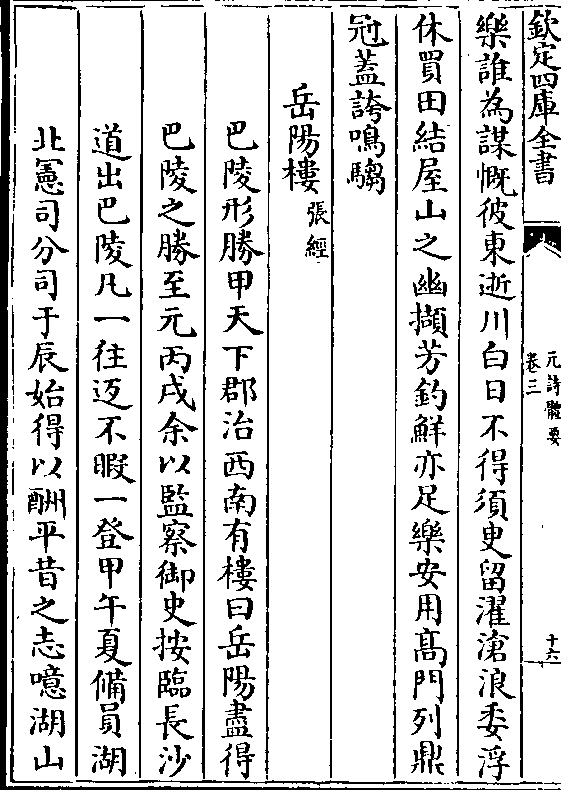 欽定四庫全書
元詩體要
卷三
十六
樂誰為謀慨彼東逝川白日不得須臾留濯滄浪委浮
休買田結屋山之幽擷芳釣鮮亦足樂安用髙門列鼎
冠蓋誇鳴騶
岳陽樓張經
巴陵形勝甲天下郡治西南有樓曰岳陽盡得
巴陵之勝至元丙戌余以監察御史按臨長沙
道出巴陵凡一往迓不暇一登甲午夏備員湖
北憲司分司于辰始得以酬平昔之志噫湖山